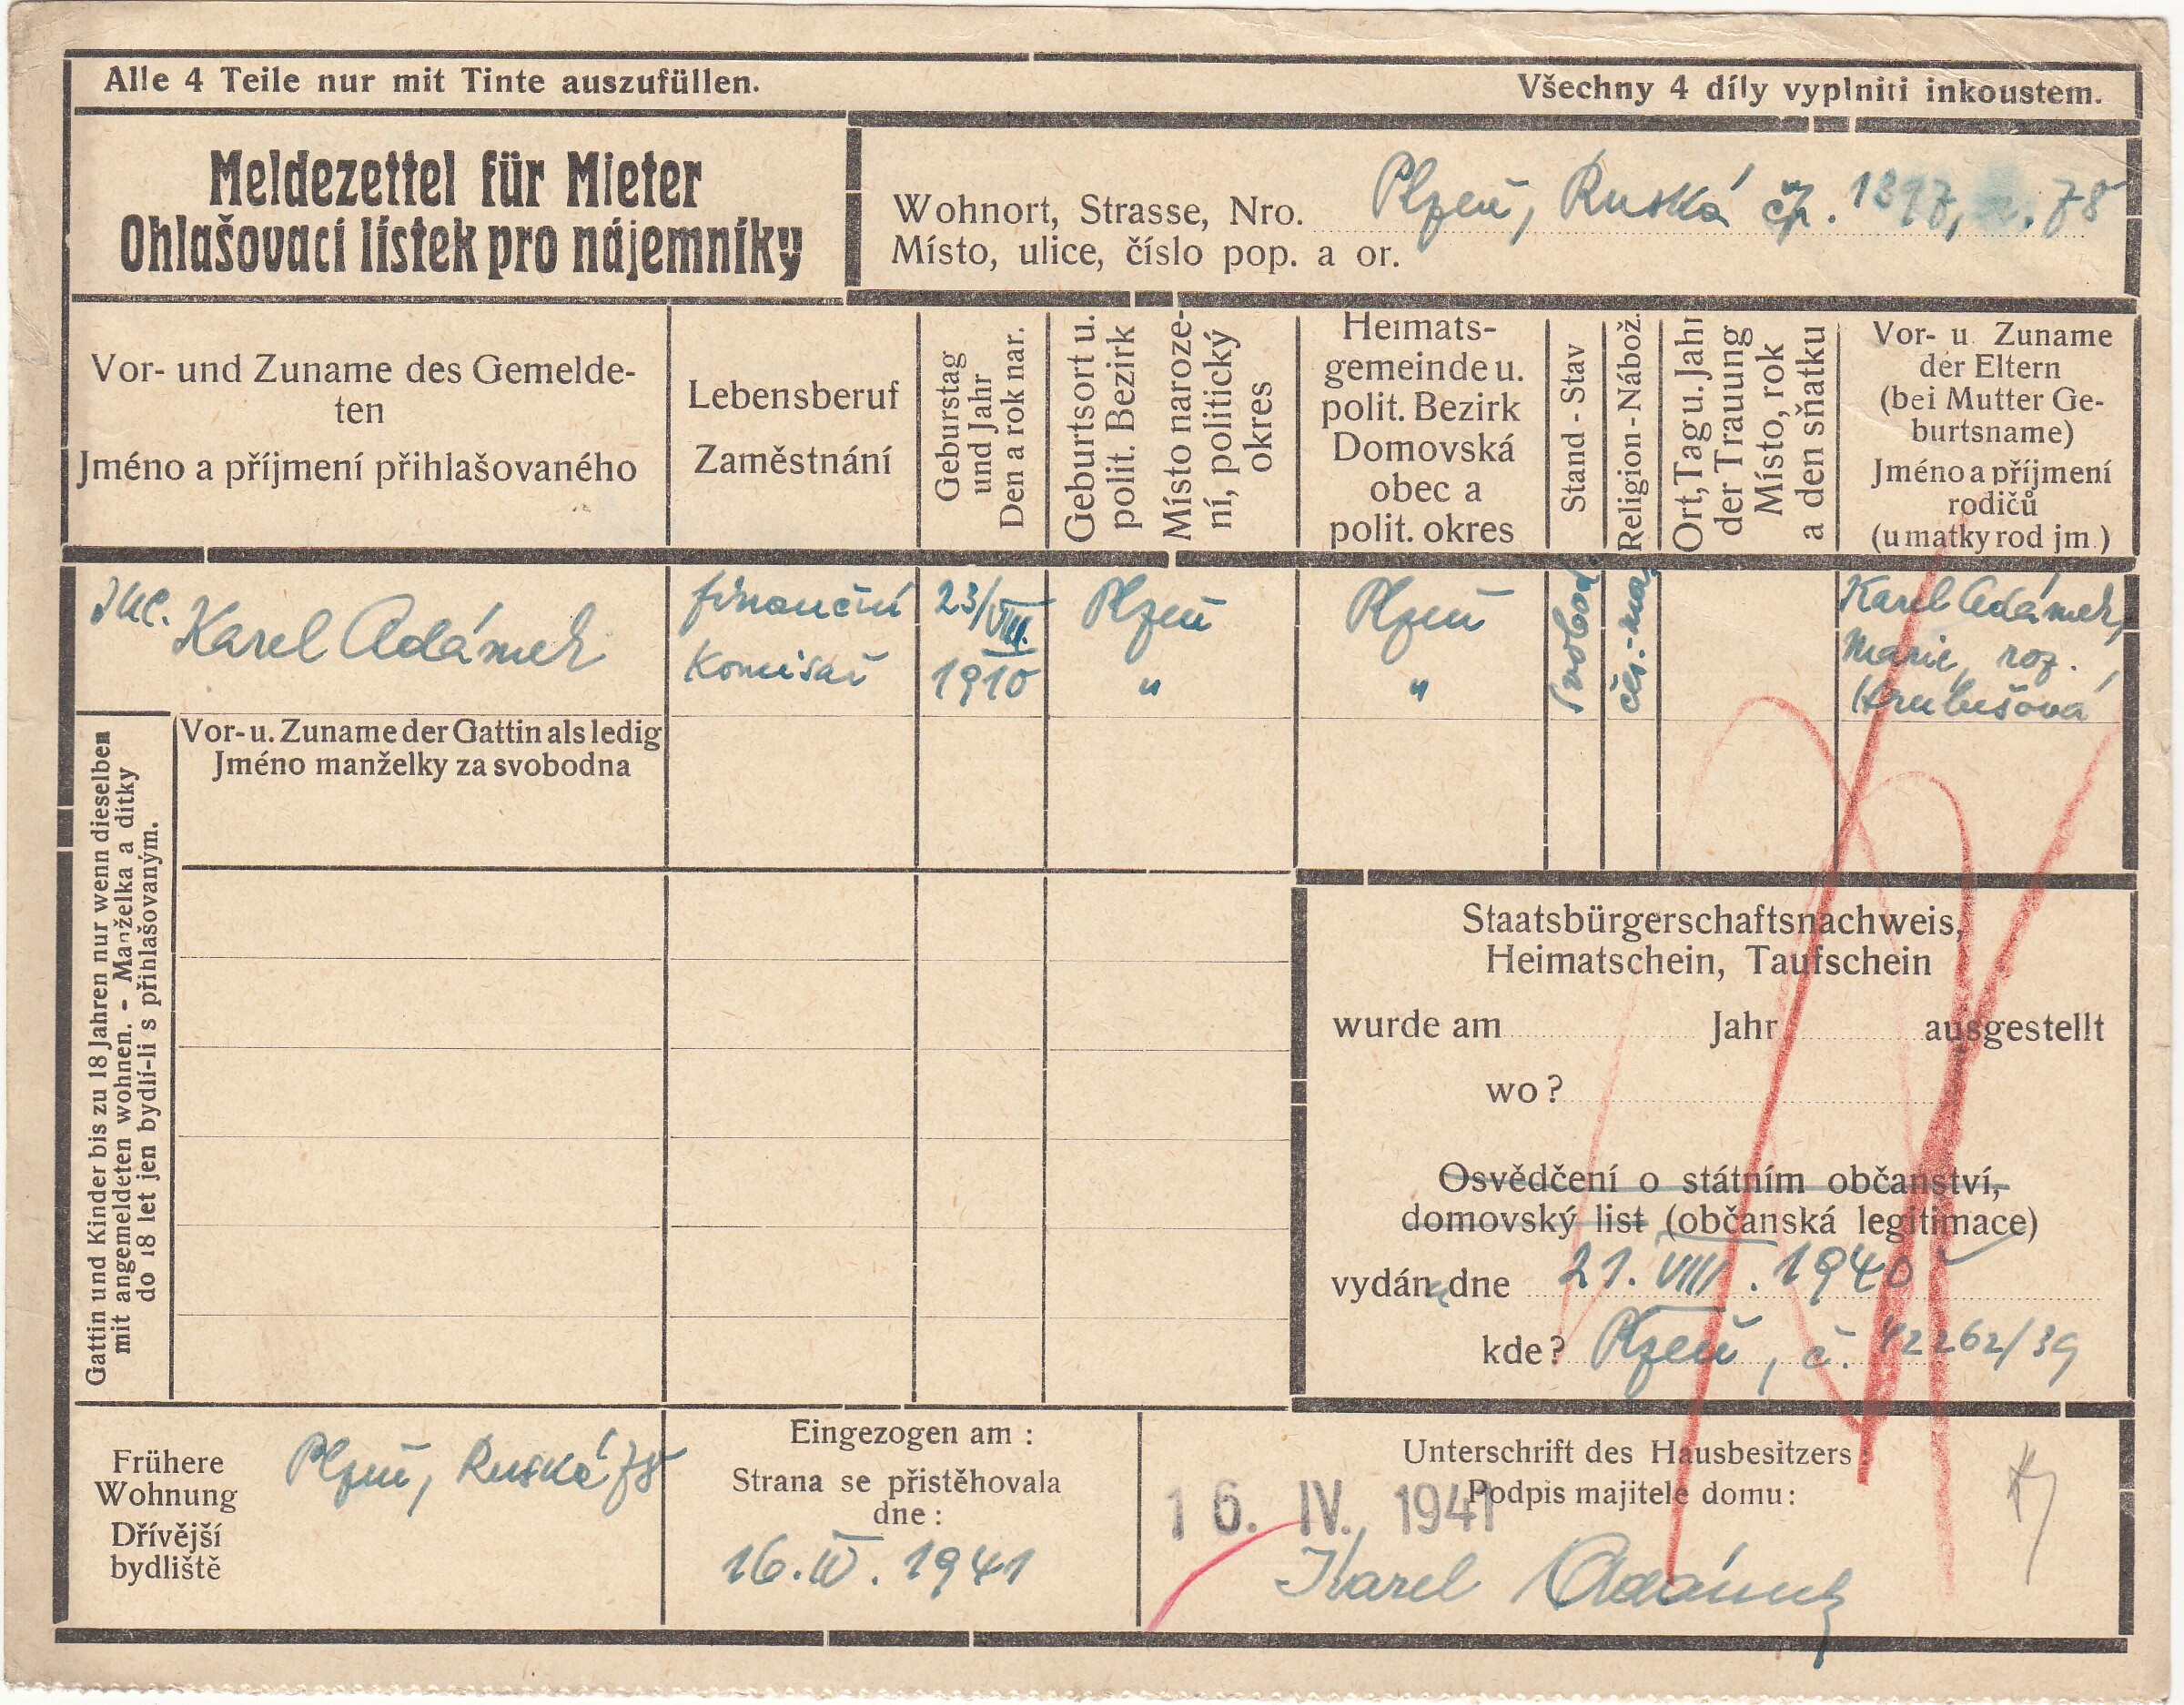 Alle 4 Teile nur mit Tinte auszufüllen.
Všechny 4 díly vyplniti inkoustem.
Meldezettel für Mieter
Ohlašovací lístek pro nájemníky
Wohnort, Strasse, Nro.
Místo, ulice, číslo pop. a or.
Plzeň, Ruská čp. 1397, 78
Vor- und Zuname des Gemelde-
ten
Jméno a příjmení přihlašovaného
Lebensberuf
Zaměstnání
Geburstag
und Jahr
Den a rok nar.
Geburtsort u.
polit. Bezirk
Místo naroze-
ní, politický
okres
Heimats-
gemeinde u.
polit. Bezirk
Domovská
obec a
polit. okres
Stand - Stav
Religion - Nábož.
Ort, Tag u. Jahr
der Trauung
Místo, rok
a den sňatku
Vor- u Zuname
der Eltern
(bei Mutter Ge-
burtsname)
Jméno a příjmení
rodičů
(u matky rod jm.)
Karel Adámek
finanční
komisař
23/VIII.
1910
Plzeň
"
Plzeň
"
svobod.
čes.-mor.
Karel Adámek,
Marie, roz.
Hrubešová
Vor- u. Zuname der Gattin als ledig
Jméno manželky za svobodna
Gattin und Kinder bis zu 18 Jahren nur wenn dieselben
mit angemeldeten wohnen. - Manželka a dítky
do 18 let jen bydlí-li s přihlašovaným.
Staatsbürgerschaftsnachweis,
Heimatschein, Taufschein
wurde am Jahr ausgestellt
wo?
Osvědčení o státním občanství,
domovský list (občanská legitimace)
vydána dne 21. VIII. 1940
kde? Plzeň, č. 42262/39
Frühere
Wohnung
Dřívější
bydliště
Plzeň, Ruská 78
Eingezogen am :
Strana se přistěhovala
dne :
16. IV. 1941
Unterschrift des Hausbesitzers :
Podpis majitele domu :
16. IV. 1941
Karel Adámek